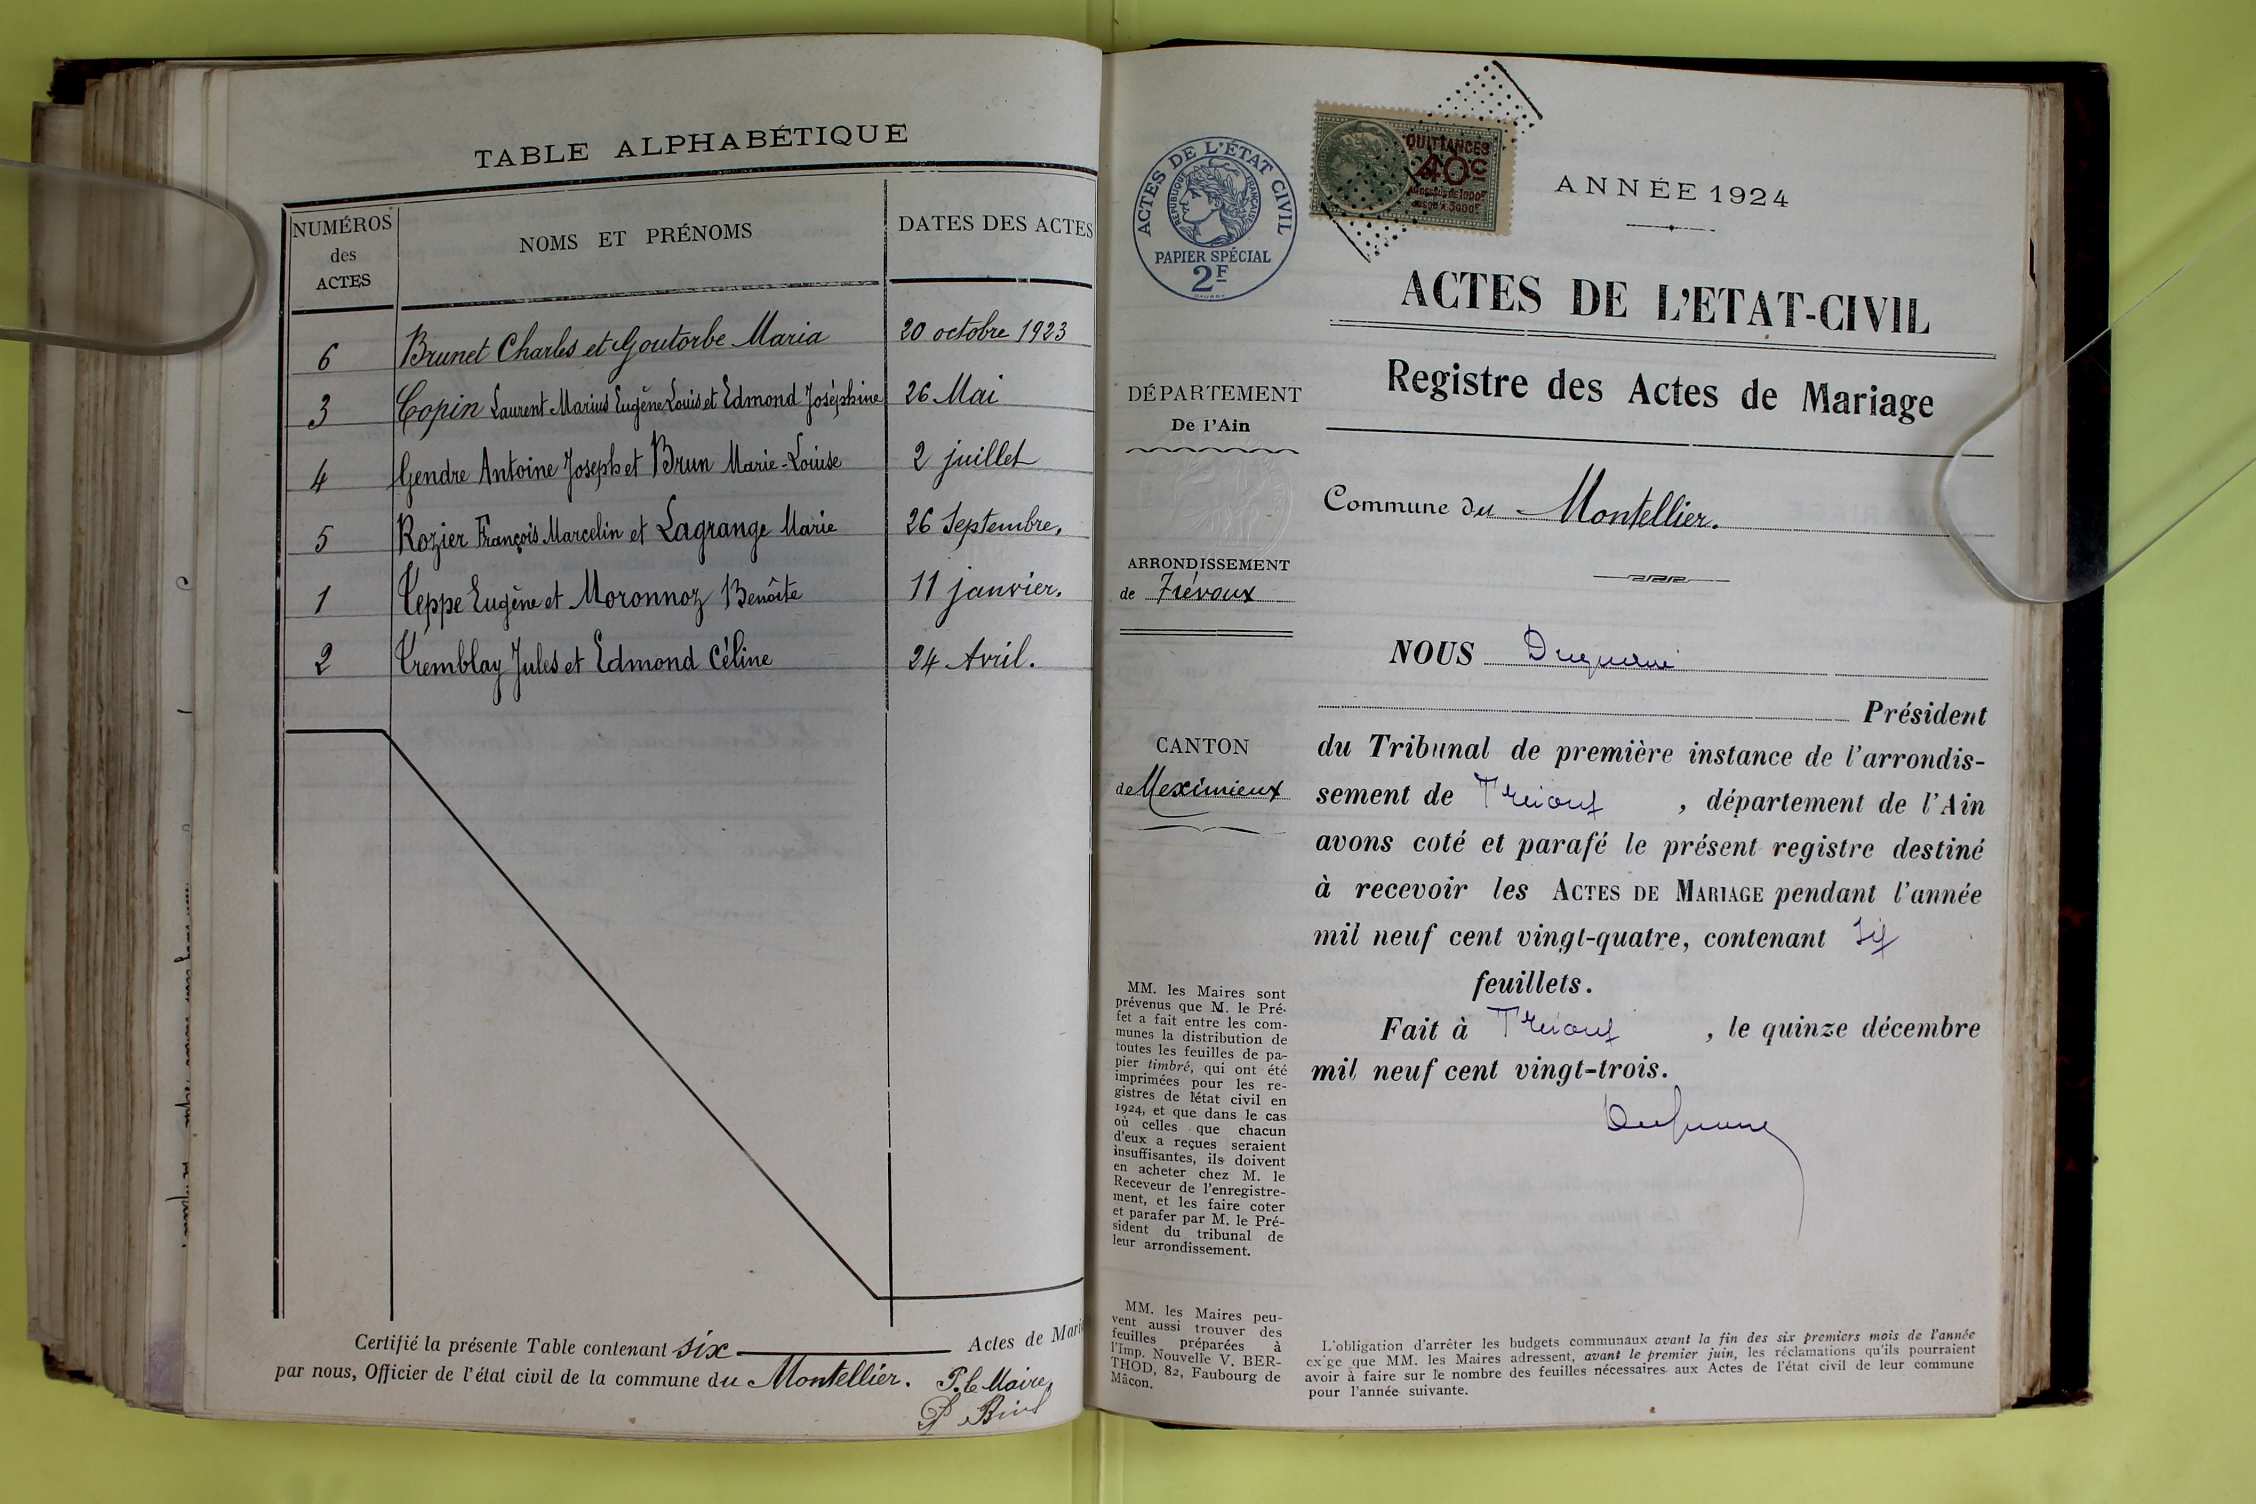 TABLE ALPHABÉTIQUE
NUMÉROS des ACTES
NOMS ET PRÉNOMS
DATES DES ACTES
6 Brunet Charles et Goutorbe Maria 20 octobre 1923
3 Copin Laurent Marius Eugène Louis et Edmond Joséphine 26 Mai
4 Gendre Antoine Joseph et Brun Marie-Louise 2 juillet
5 Rozier François Marcelin et Lagrange Marie 26 Septembre,
1 Teppe Eugène et Moronnoz Benoîte 11 janvier.
2 Tremblay Jules et Edmond Céline 24 Avril.
Certifié la présente Table contenant six Actes de Mari
par nous, Officier de l'état civil de la commune du Montellier. P. le Maire,
ACTES DE L'ÉTAT CIVIL
RÉPUBLIQUE FRANÇAISE
PAPIER SPÉCIAL
2F
QUITTANCES
40c
AU DESSUS DE 1000F
JUSQU'À 3000F
ANNÉE 1924
ACTES DE L'ETAT-CIVIL
Registre des Actes de Mariage
DÉPARTEMENT
De l'Ain
Commune du Montellier.
ARRONDISSEMENT
de Trévoux
CANTON
de Meximieux
NOUS
Président
du Tribunal de première instance de l'arrondis-
sement de Trévoux, département de l'Ain
avons coté et parafé le présent registre destiné
à recevoir les ACTES DE MARIAGE pendant l'année
mil neuf cent vingt-quatre, contenant six
feuillets.
Fait à Trévoux, le quinze décembre
mil neuf cent vingt-trois.
MM. les Maires sont
prévenus que M. le Pré-
fet a fait entre les com-
munes la distribution de
toutes les feuilles de pa-
pier timbré, qui ont été
imprimées pour les re-
gistres de l'état civil en
1924, et que dans le cas
où celles que chacun
d'eux a reçues seraient
insuffisantes, ils doivent
en acheter chez M. le
Receveur de l'enregistre-
ment, et les faire coter
et parafer par M. le Pré-
sident du tribunal de
leur arrondissement.
MM. les Maires peu-
vent aussi trouver des
feuilles préparées à
l'Imp. Nouvelle V. BER-
THOD, 82, Faubourg de
Mâcon.
L'obligation d'arrêter les budgets communaux avant la fin des six premiers mois de l'année
exige que MM. les Maires adressent, avant le premier juin, les réclamations qu'ils pourraient
avoir à faire sur le nombre des feuilles nécessaires aux Actes de l'état civil de leur commune
pour l'année suivante.